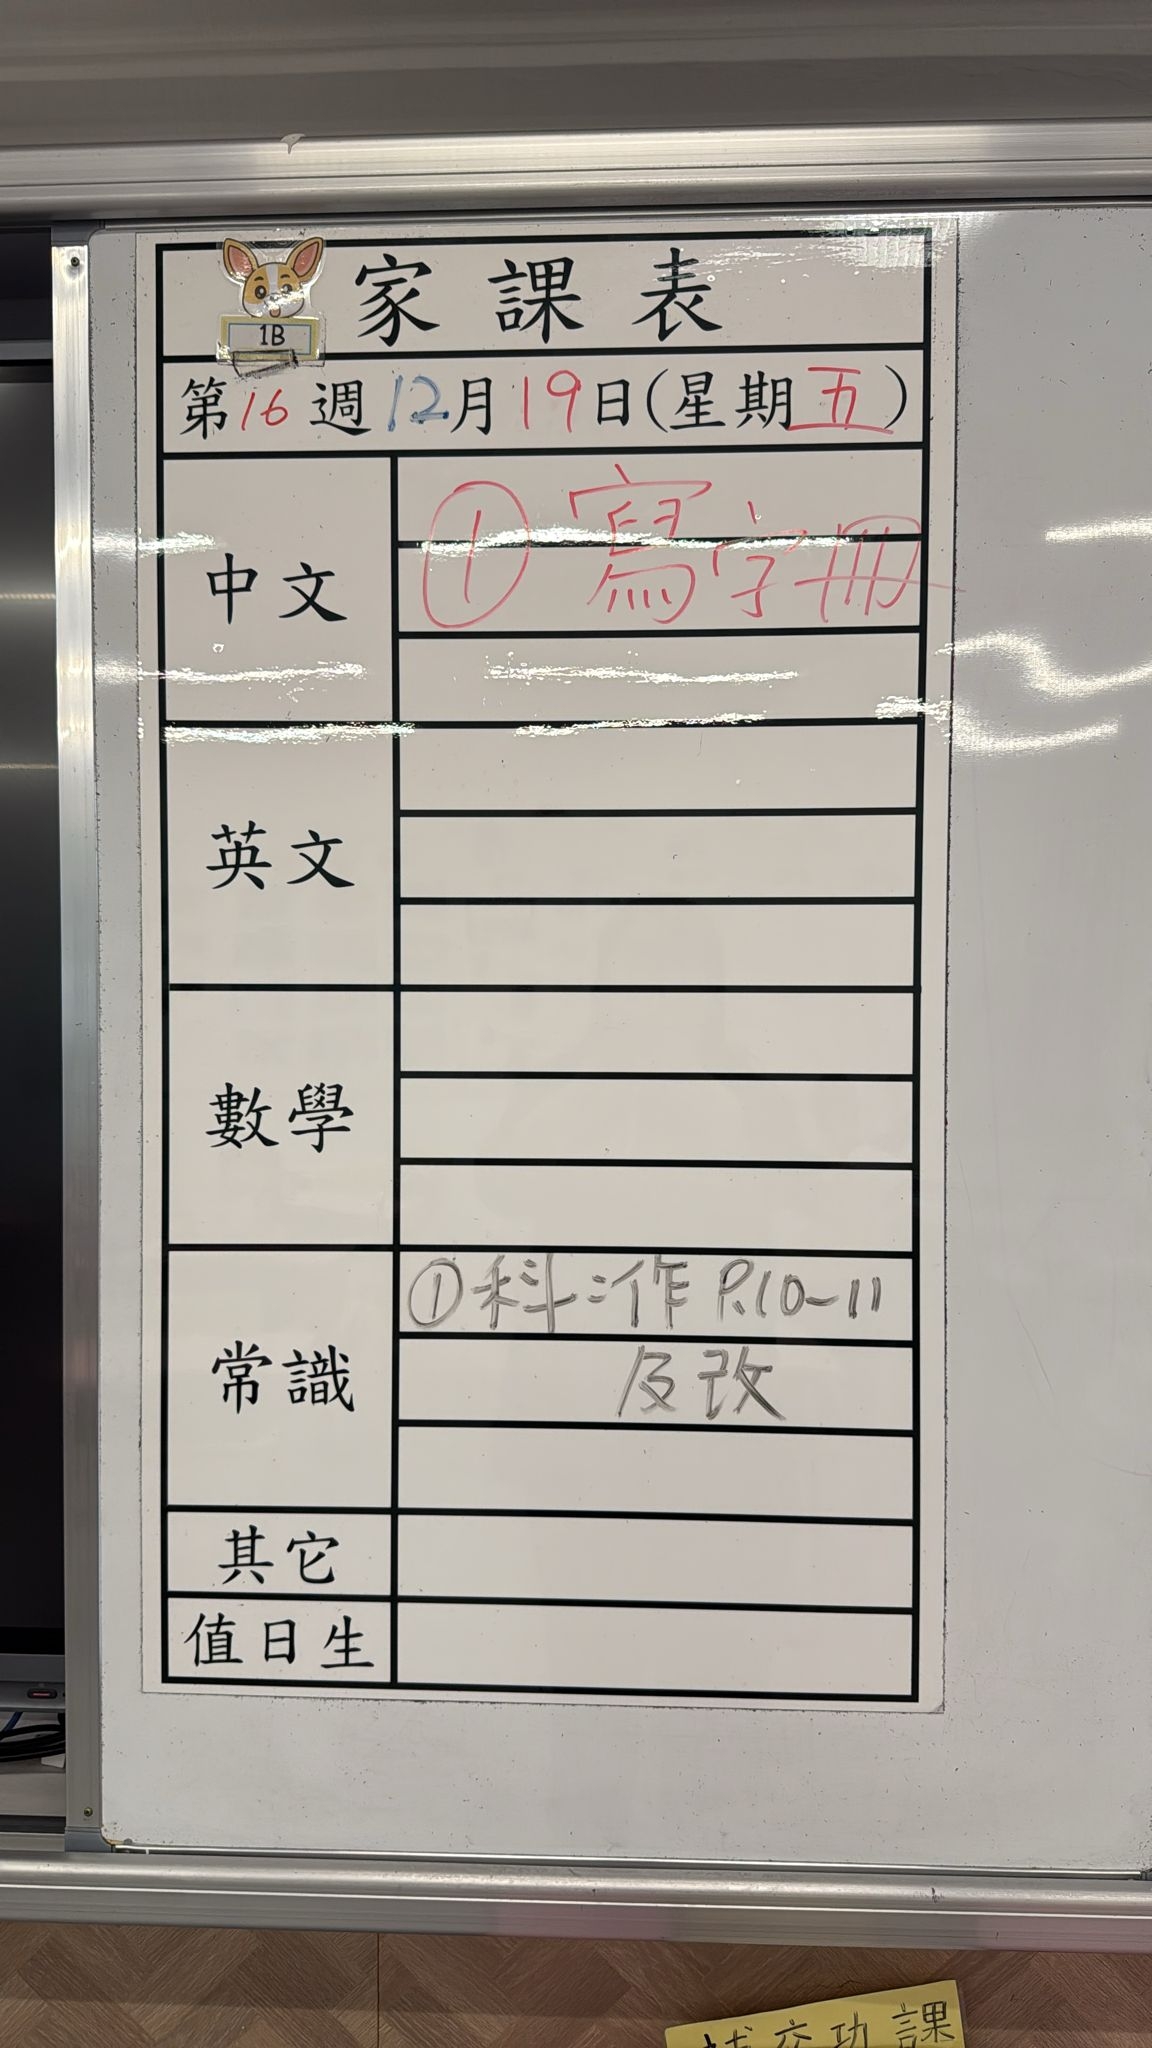 家課表
1B
第16週12月19日(星期五)
中文
①寫字冊
英文
數學
常識
①科:作 P.10-11
及改
其它
值日生
交功課